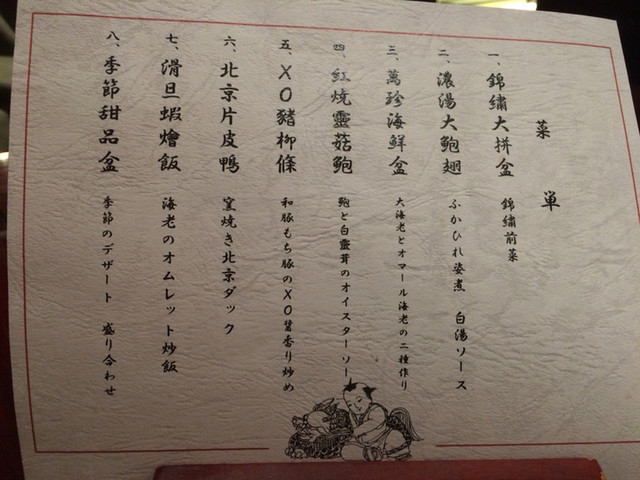 菜単
一、錦繡大拼盆 錦繡前菜
二、濃湯大鮑翅 ふかひれ姿煮 白湯ソース
三、萬珍海鮮盆 大海老とオマール海老の二種作り
四、紅焼靈菇鮑 鮑と白靈茸のオイスターソー
五、XO豬柳條 和豚もち豚のXO醤香り炒め
六、北京片皮鴨 窯焼き北京ダック
七、滑旦蝦燴飯 海老のオムレット炒飯
八、季節甜品盆 季節のデザート 盛り合わせ